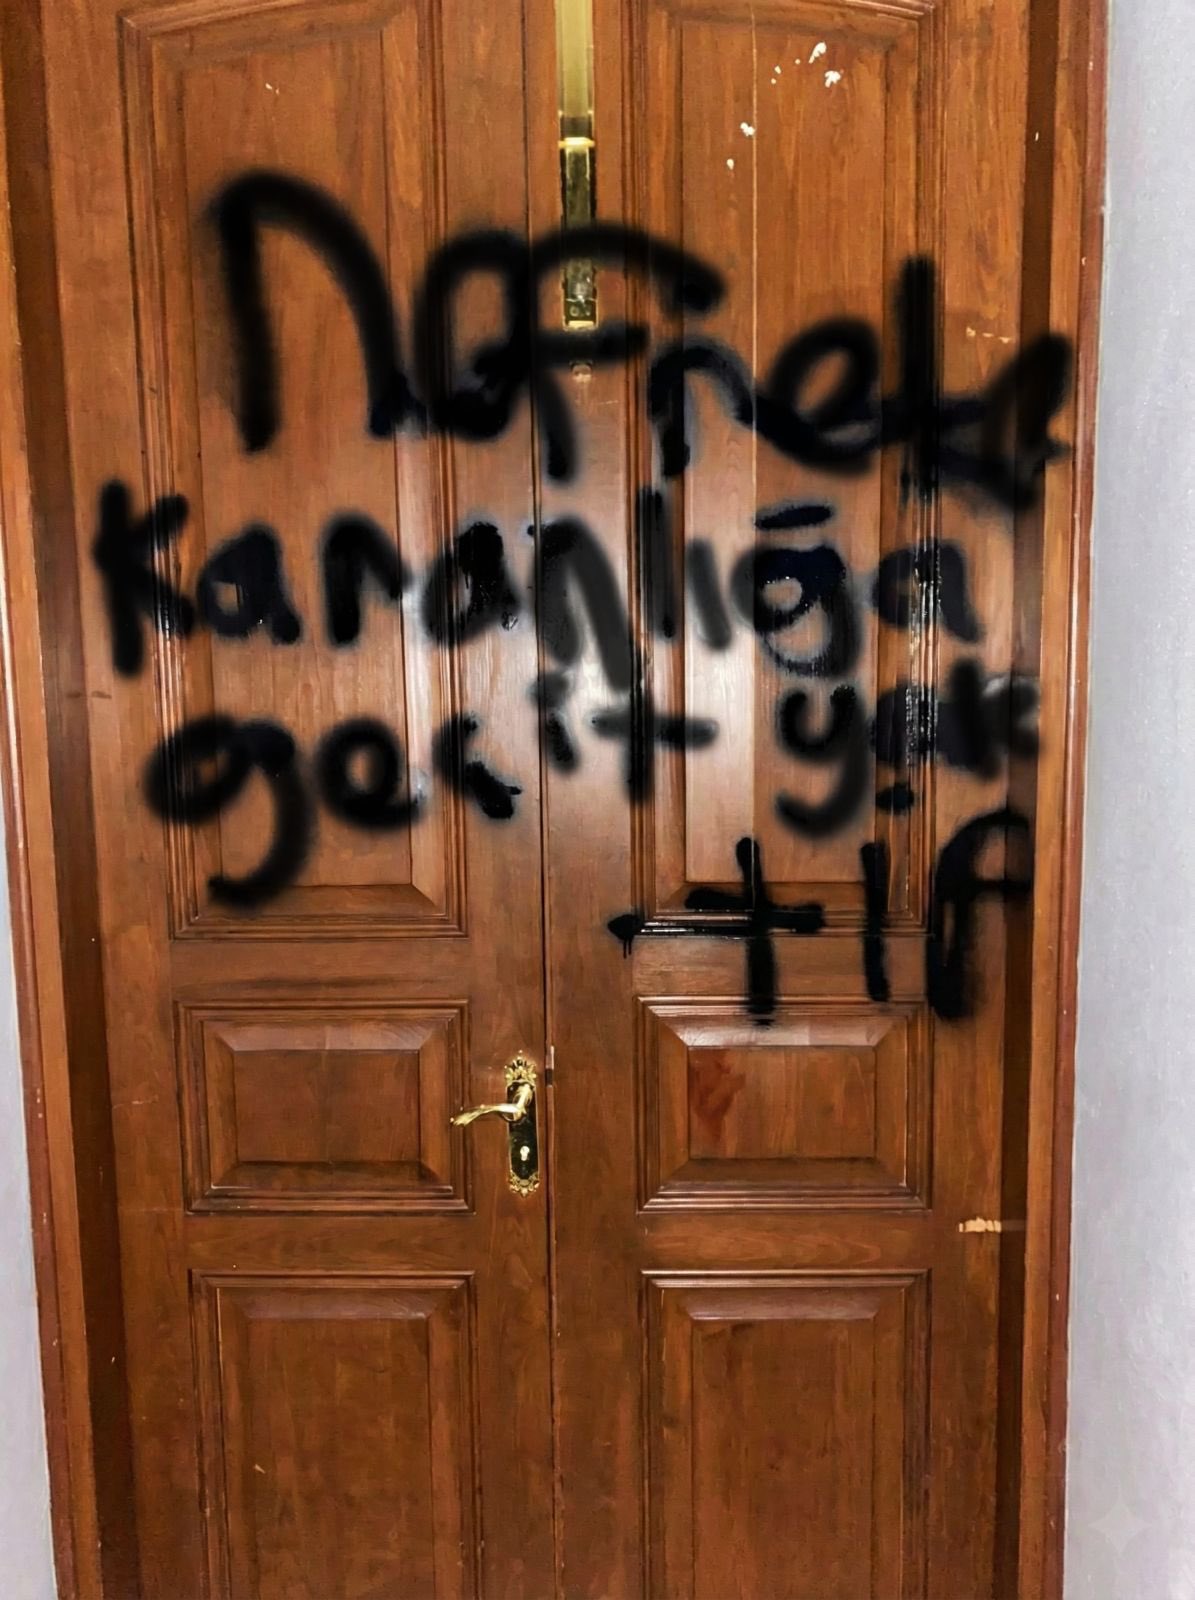 Nefrete
karanlığa
geçit yok
TIP